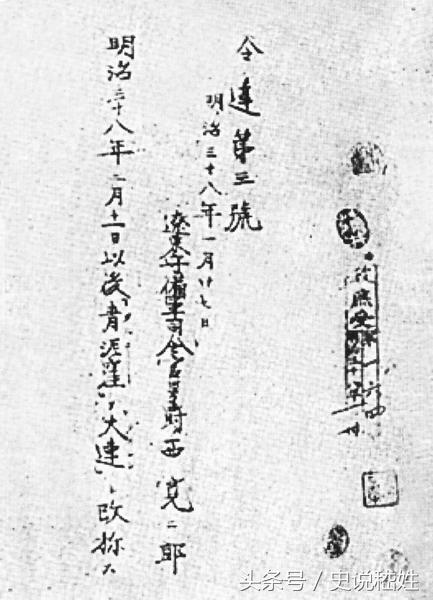 令達第三號
明治三十八年一月廿七日
遼東守備軍司令官男爵西寛二郎
明治三十八年二月十一日以後青泥窪ヲ大連ト改称ス
头条号 / 史说嵇姓